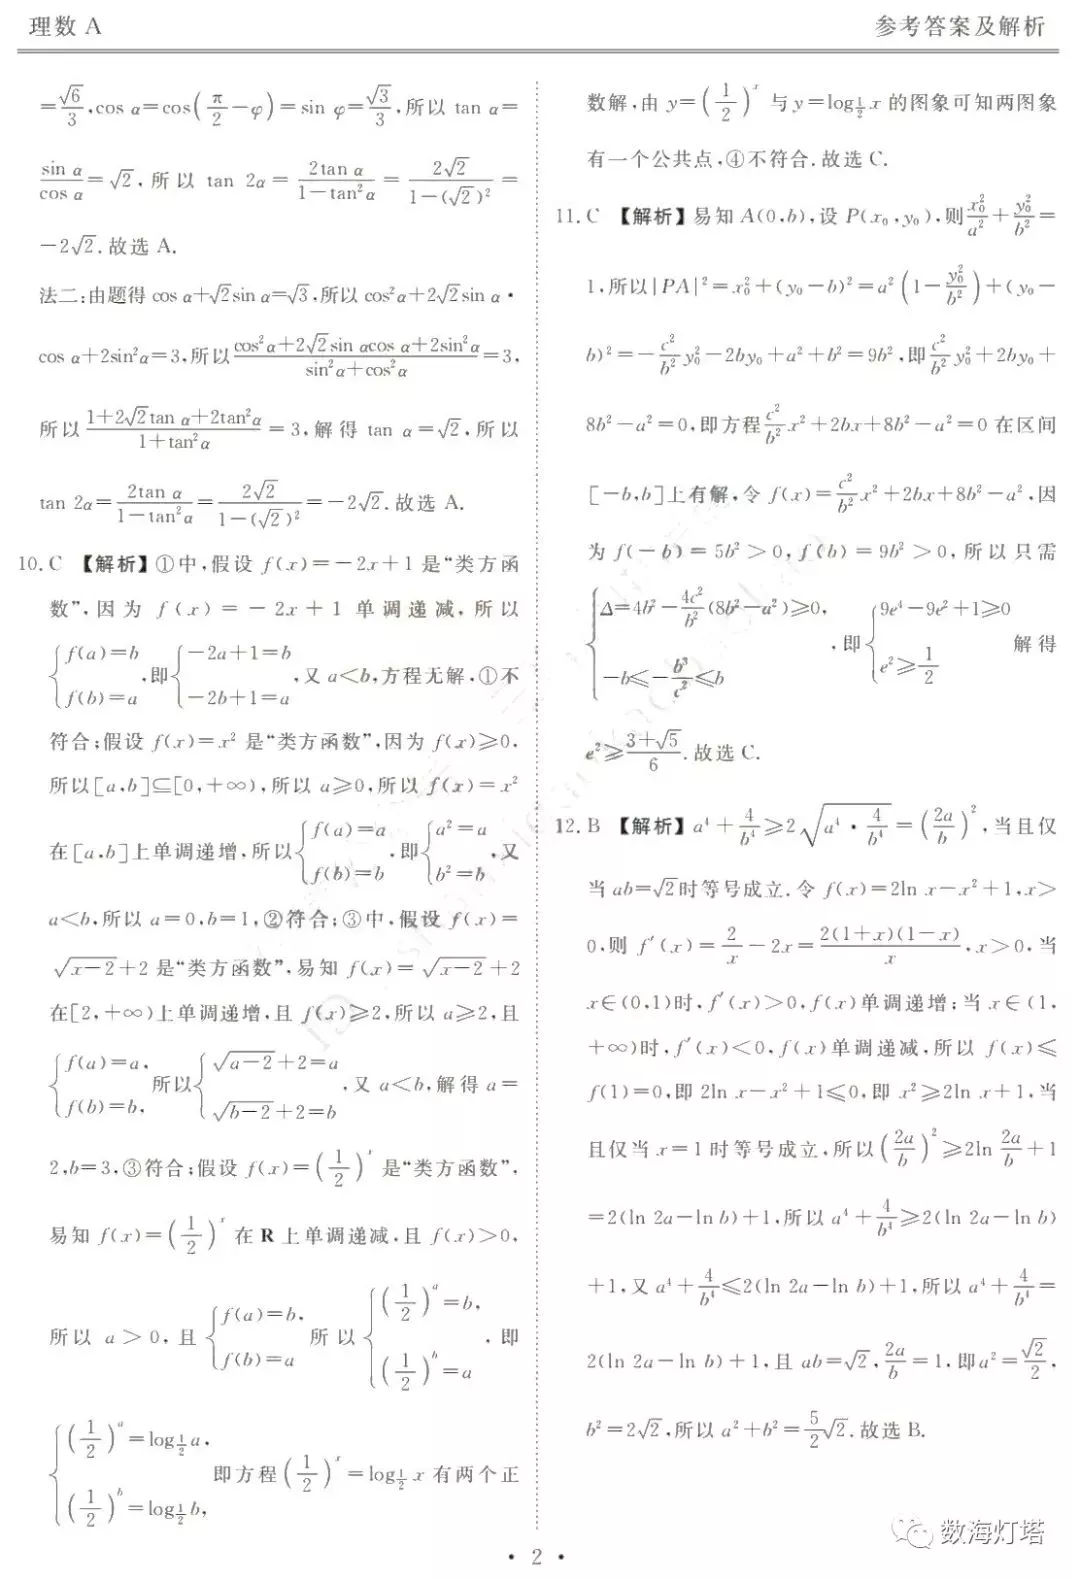 理数 A
参考答案及解析
=√6/3,cos α=cos(π/2−φ)=sin φ=√3/3,所以 tan α=
sin α/cos α=√2,所以 tan 2α=2tan α/(1−tan²α)=2√2/(1−(√2)²)=
−2√2.故选 A.
法二:由题得 cos α+√2sin α=√3,所以 cos²α+2√2sin α·
cos α+2sin²α=3,所以(cos²α+2√2sin αcos α+2sin²α)/(sin²α+cos²α)=3,
所以(1+2√2tan α+2tan²α)/(1+tan²α)=3,解得 tan α=√2,所以
tan 2α=2tan α/(1−tan²α)=2√2/(1−(√2)²)=−2√2.故选 A.
10.C 【解析】①中,假设 f(x)=−2x+1 是“类方函
数”,因为 f(x)=−2x+1 单调递减,所以
{f(a)=b f(b)=a,即{−2a+1=b −2b+1=a,又 a<b,方程无解,①不
符合;假设 f(x)=x² 是“类方函数”,因为 f(x)≥0,
所以[a,b]⊆[0,+∞),所以 a≥0,所以 f(x)=x²
在[a,b]上单调递增,所以{f(a)=a f(b)=b,即{a²=a b²=b,又
a<b,所以 a=0,b=1,②符合;③中,假设 f(x)=
√(x−2)+2 是“类方函数”,易知 f(x)=√(x−2)+2
在[2,+∞)上单调递增,且 f(x)≥2,所以 a≥2,且
{f(a)=a, f(b)=b,所以{√(a−2)+2=a √(b−2)+2=b,又 a<b,解得 a=
2,b=3,③符合;假设 f(x)=(1/2)^x 是“类方函数”,
易知 f(x)=(1/2)^x 在 R 上单调递减,且 f(x)>0,
所以 a>0,且{f(a)=b, f(b)=a 所以{(1/2)^a=b, (1/2)^b=a,即
{(1/2)^a=log_{1/2} a, (1/2)^b=log_{1/2} b,即方程(1/2)^x=log_{1/2} x 有两个正
数解,由 y=(1/2)^x 与 y=log_{1/2} x 的图象可知两图象
有一个公共点,④不符合.故选 C.
11.C 【解析】易知 A(0,b),设 P(x₀,y₀),则x₀²/a²+y₀²/b²=
1,所以|PA|²=x₀²+(y₀−b)²=a²(1−y₀²/b²)+(y₀−
b)²=−c²/b² y₀²−2by₀+a²+b²=9b²,即c²/b² y₀²+2by₀+
8b²−a²=0,即方程c²/b² x²+2bx+8b²−a²=0 在区间
[−b,b]上有解,令 f(x)=c²/b² x²+2bx+8b²−a²,因
为 f(−b)=5b²>0,f(b)=9b²>0,所以只需
{Δ=4b²−4c²/b²(8b²−a²)≥0, −b≤−b³/c²≤b,即{9e⁴−9e²+1≥0 e²≥1/2 解得
e²≥(3+√5)/6.故选 C.
12.B 【解析】a⁴+4/b⁴≥2√(a⁴·4/b⁴)=(2a/b)²,当且仅
当 ab=√2时等号成立.令 f(x)=2ln x−x²+1,x>
0,则 f′(x)=2/x−2x=2(1+x)(1−x)/x,x>0,当
x∈(0,1)时,f′(x)>0,f(x)单调递增;当 x∈(1,
+∞)时,f′(x)<0,f(x)单调递减,所以 f(x)≤
f(1)=0,即 2ln x−x²+1≤0,即 x²≥2ln x+1,当
且仅当 x=1 时等号成立,所以(2a/b)²≥2ln 2a/b+1
=2(ln 2a−ln b)+1,所以 a⁴+4/b⁴≥2(ln 2a−ln b)
+1,又 a⁴+4/b⁴≤2(ln 2a−ln b)+1,所以 a⁴+4/b⁴=
2(ln 2a−ln b)+1,且 ab=√2,2a/b=1,即a²=√2/2,
b²=2√2,所以 a²+b²=5/2√2.故选 B.
数海灯塔
· 2 ·